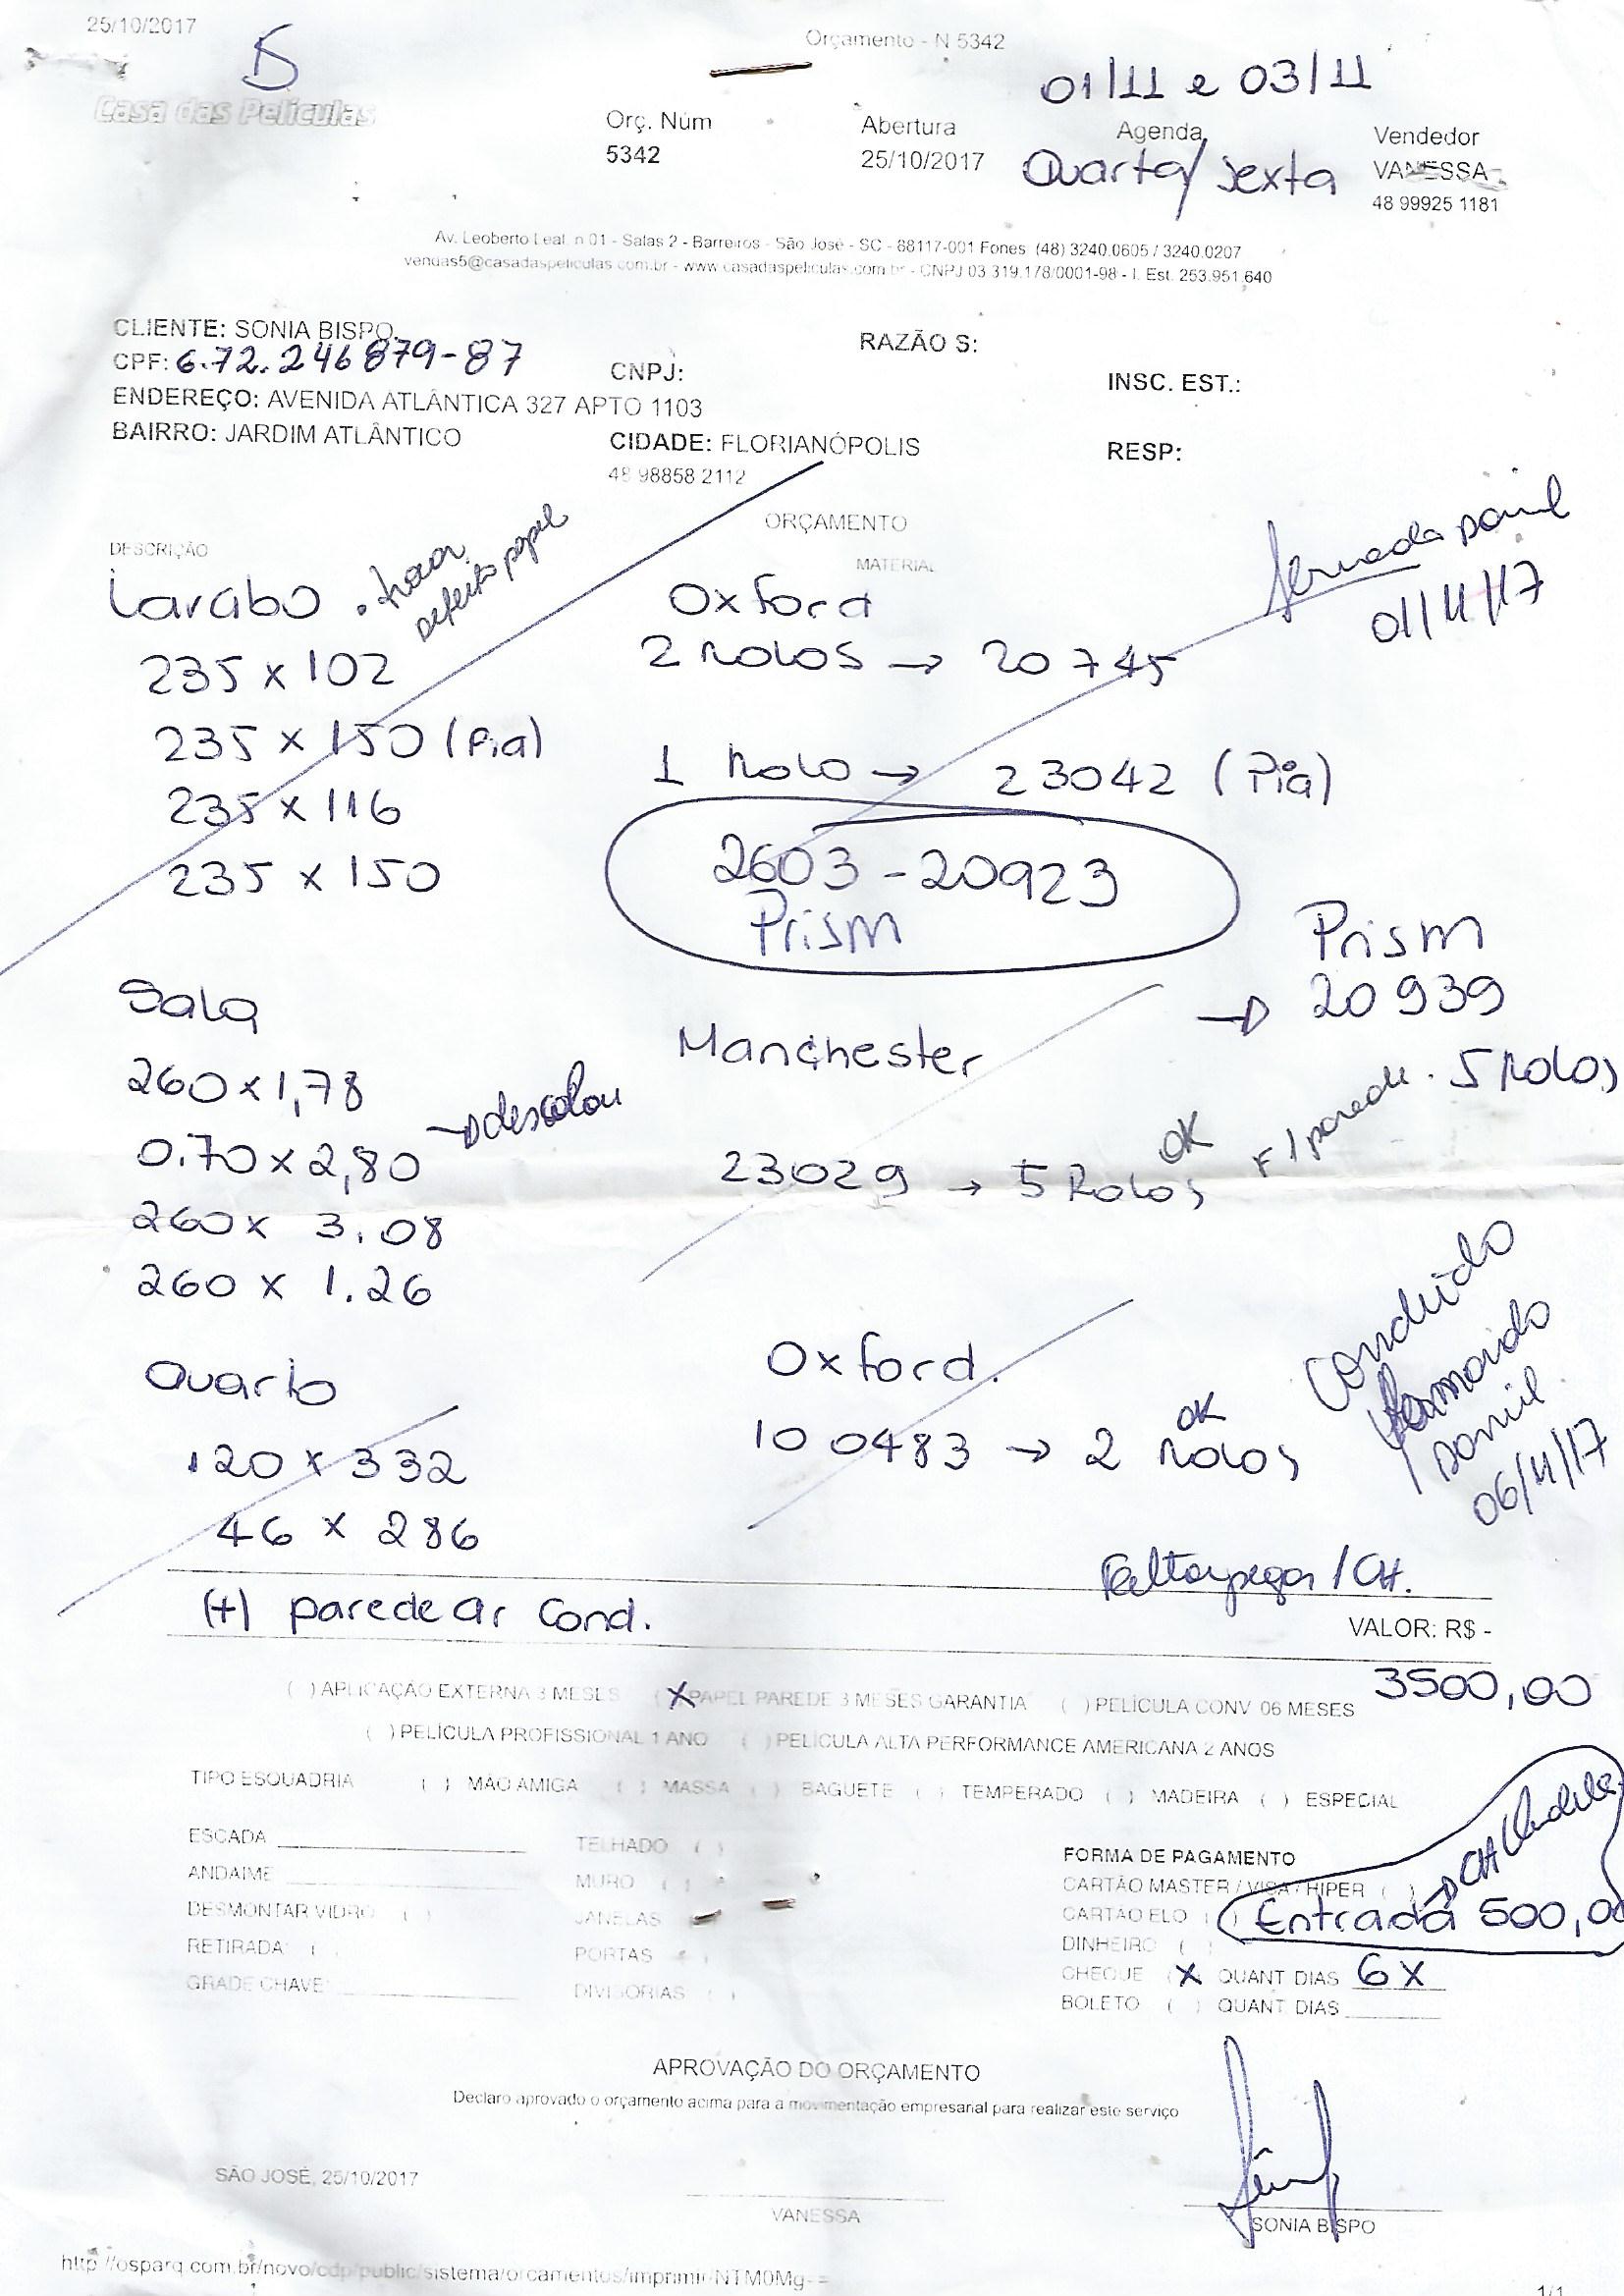 25/10/2017
Orçamento - N 5342
01/11 e 03/11
Casa das Películas
Orç. Núm
5342
Abertura
25/10/2017
Agenda
Quarta/sexta
Vendedor
VANESSA
48 99925 1181
Av. Leoberto Leal, n 01 - Salas 2 - Barreiros - São José - SC - 88117-001 Fones (48) 3240.0605 / 3240.0207
vendas5@casadaspeliculas.com.br - www.casadaspeliculas.com.br - CNPJ 03.319.178/0001-98 - I. Est. 253.951.640
CLIENTE: SONIA BISPO
RAZÃO S:
CPF: 6.72.246879-87
CNPJ:
INSC. EST.:
ENDEREÇO: AVENIDA ATLÂNTICA 327 APTO 1103
BAIRRO: JARDIM ATLÂNTICO
CIDADE: FLORIANÓPOLIS
RESP:
48 98858 2112
ORÇAMENTO
DESCRIÇÃO
MATERIAL
Lavabo
defeito papel
Oxford
01/11/17
235 x 102
2 Rolos → 20745
235 x 150 (Pia)
1 Rolo → 23042 (Pia)
235 x 116
235 x 150
2603 - 20923
Prism
Prism
→ 20939
Sala
Manchester
260 x 1,78
→ descolou
+ 1 parede. 5 Rolos
0.70 x 2,80
23029 → 5 Rolos OK
260 x 3.08
260 x 1.26
Quarto
Oxford.
120 x 332
100483 → 2 Rolos OK
46 x 286
06/11/17
(+) parede ar Cond.
VALOR: R$ -
3500,00
( ) APLICAÇÃO EXTERNA 3 MESES (X) PAPEL PAREDE 3 MESES GARANTIA ( ) PELÍCULA CONV 06 MESES
( ) PELÍCULA PROFISSIONAL 1 ANO ( ) PELÍCULA ALTA PERFORMANCE AMERICANA 2 ANOS
TIPO ESQUADRIA ( ) MÃO AMIGA ( ) MASSA ( ) BAGUETE ( ) TEMPERADO ( ) MADEIRA ( ) ESPECIAL
ESCADA
TELHADO ( )
FORMA DE PAGAMENTO
ANDAIME
MURO ( )
CARTÃO MASTER / VISA / HIPER ( )
DESMONTAR VIDRO ( )
JANELAS
CARTÃO ELO ( )
Entrada 500,00
RETIRADA ( )
PORTAS ( )
DINHEIRO ( )
GRADE CHAVE
DIVISORIAS ( )
CHEQUE (X) QUANT DIAS 6X
BOLETO ( ) QUANT DIAS
APROVAÇÃO DO ORÇAMENTO
Declaro aprovado o orçamento acima para a movimentação empresarial para realizar este serviço
SÃO JOSÉ, 25/10/2017
VANESSA
SONIA BISPO
http://osparq.com.br/novo/cdp/public/sistema/orcamentos/imprimir/NTM0Mg==
1/1